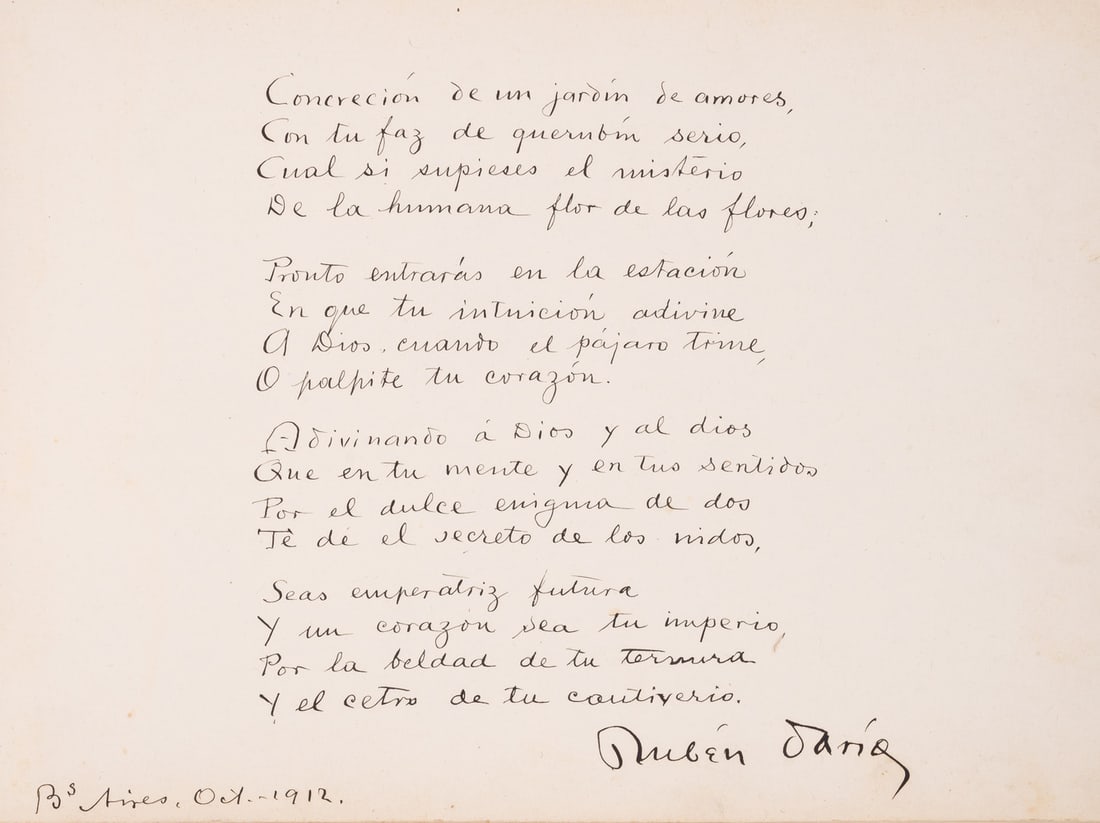 Concreción de un jardín de amores,
Con tu faz de querubín serio,
Cual si supieses el misterio
De la humana flor de las flores;
Pronto entrarás en la estación
En que tu intuición adivine
A Dios, cuando el pájaro trine,
O palpite tu corazón.
Adivinando á Dios y al dios
Que en tu mente y en tus sentidos
Por el dulce enigma de dos
Te dé el secreto de los nidos,
Seas emperatriz futura
Y un corazón sea tu imperio,
Por la beldad de tu ternura
Y el cetro de tu cautiverio.
Rubén Darío
Bs Aires, Oct.-1912.